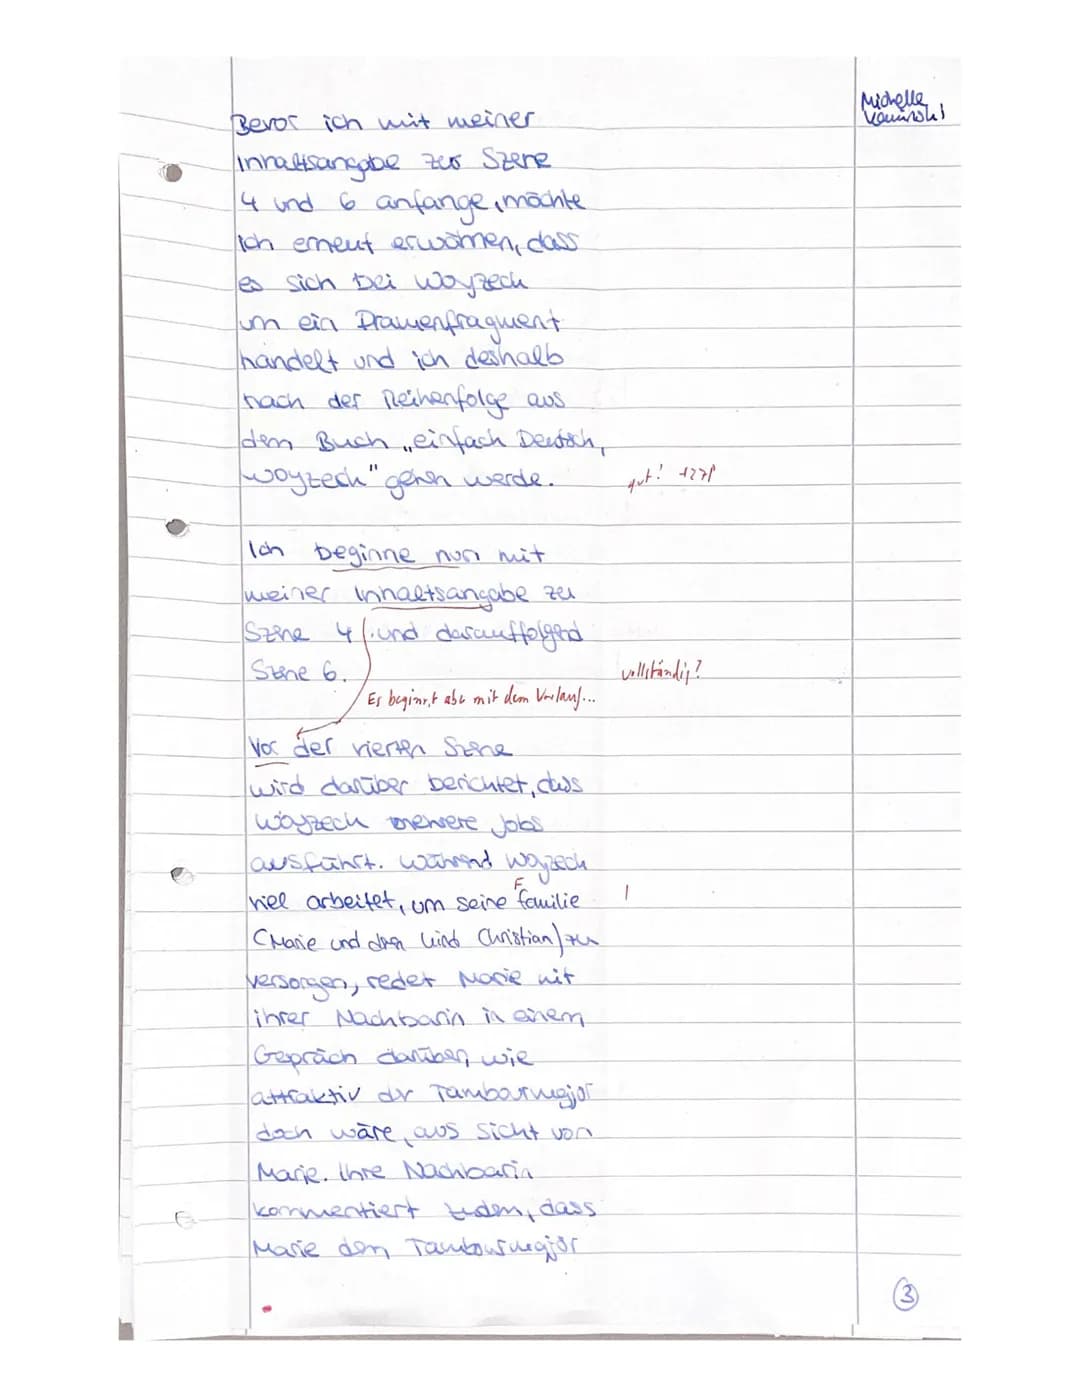 Michelle
Bevor ich mit meiner
Inhaltsangabe zur Szene
4 und 6 anfange, möchte
ich erneut erwähnen, dass
es sich bei Woyzeck
um ein Dramenfragment
handelt und ich deshalb
nach der Reihenfolge aus
dem Buch „einfach Deutsch,
Woyzeck" gehen werde.
gut!
Ich beginne nun mit
meiner Inhaltsangabe zu
Szene 4 und darauffolgend
Szene 6.
vollständig?
Es beginnt aber mit dem Vorlauf...
Vor der vierten Szene
wird darüber berichtet, dass
Woyzeck mehrere Jobs
ausführt. Während Woyzeck
viel arbeitet, um seine familie
F
!
(Marie und den Kind Christian) zu
versorgen, redet Marie mit
ihrer Nachbarin in einem
Gepräch darüber, wie
attraktiv der Tambourmajor
doch wäre, aus Sicht von
Marie. Ihre Nachbarin
kommentiert zudem, dass
Marie dem Tambourmajor
3